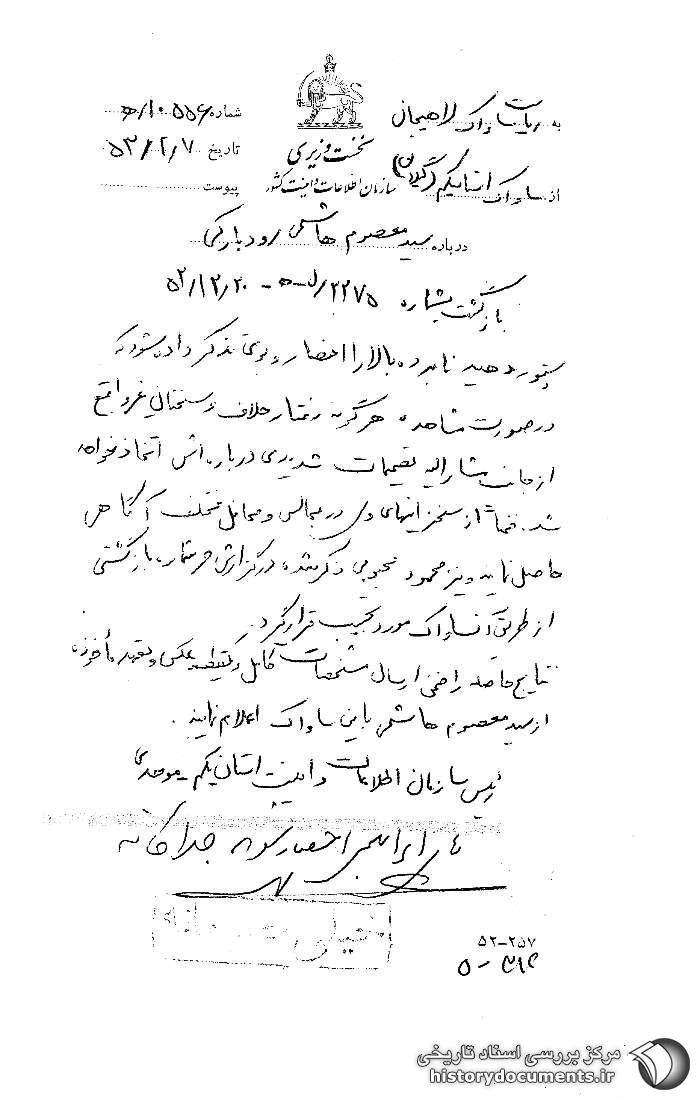 به ریاست ساواک لاهیجان
از ساواک استان یکم (گیلان)
نخست وزیری
سازمان اطلاعات و امنیت کشور
شماره ۱۰۵۵۶/ه‍
تاریخ ۵۳/۲/۷
پیوست
درباره سید معصوم هاشمی رودبارکی
بازگشت بشماره ۲۲۷۵/ل‍ه‍ - ۵۲/۱۲/۲۰
دستور دهید نامبرده بالا را احضار و بوی تذکر داده شود که
در صورت مشاهده هرگونه رفتار خلاف و سخنان غیر واقع
از جانب مشارالیه تصمیمات شدیدی درباره اش اتخاذ خواهد
شد. ضمناً از سخنرانیهای وی در مجالس و محافل مختلف آگاهی
حاصل نمایند و نیز محمود محبوبی ذکر شده در گزارش خبر شماره بازگشتی
از طریق آن ساواک مورد تعقیب قرار گیرد.
نتایج حاصله را ضمن ارسال مشخصات کامل و یکقطعه عکس و تعهد مأخوذه
از سید معصوم هاشمی باین ساواک اعلام نمایند.
رئیس سازمان اطلاعات و امنیت استان یکم - موحدی
احضار شود جداگانه
خیلی محرمانه
۵۲-۲۵۷
مرکز بررسی اسناد تاریخی
historydocuments.ir